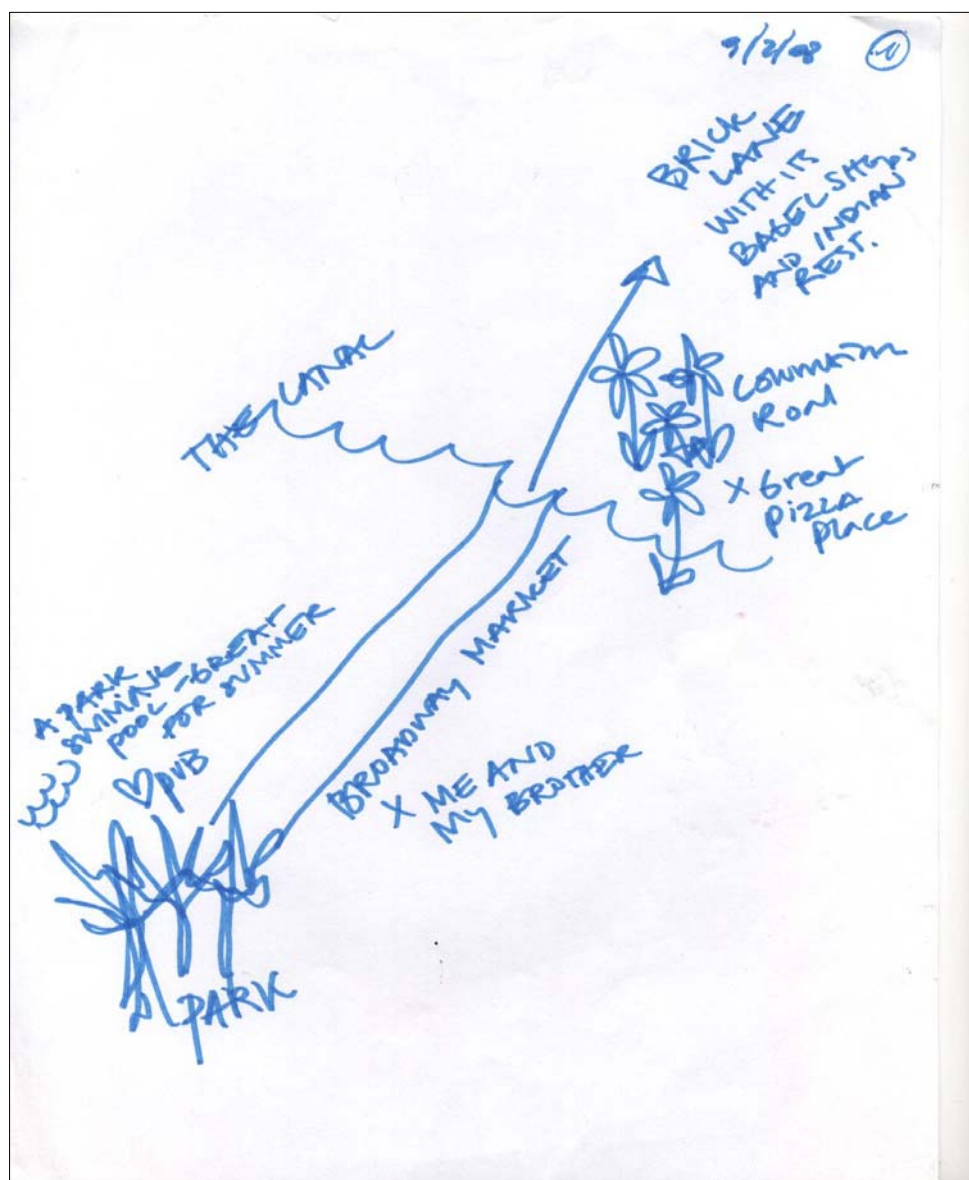 9/2/08
BRICK
LANE
WITH ITS
BAGEL SHOPS
AND INDIAN
REST.
THE CANAL
ROAD
X Great
pizza
place
A PARK
SWIMING
POOL - GREAT
FOR SUMMER
PUB
BROADWAY MARKET
X ME AND
MY BROTHER
PARK